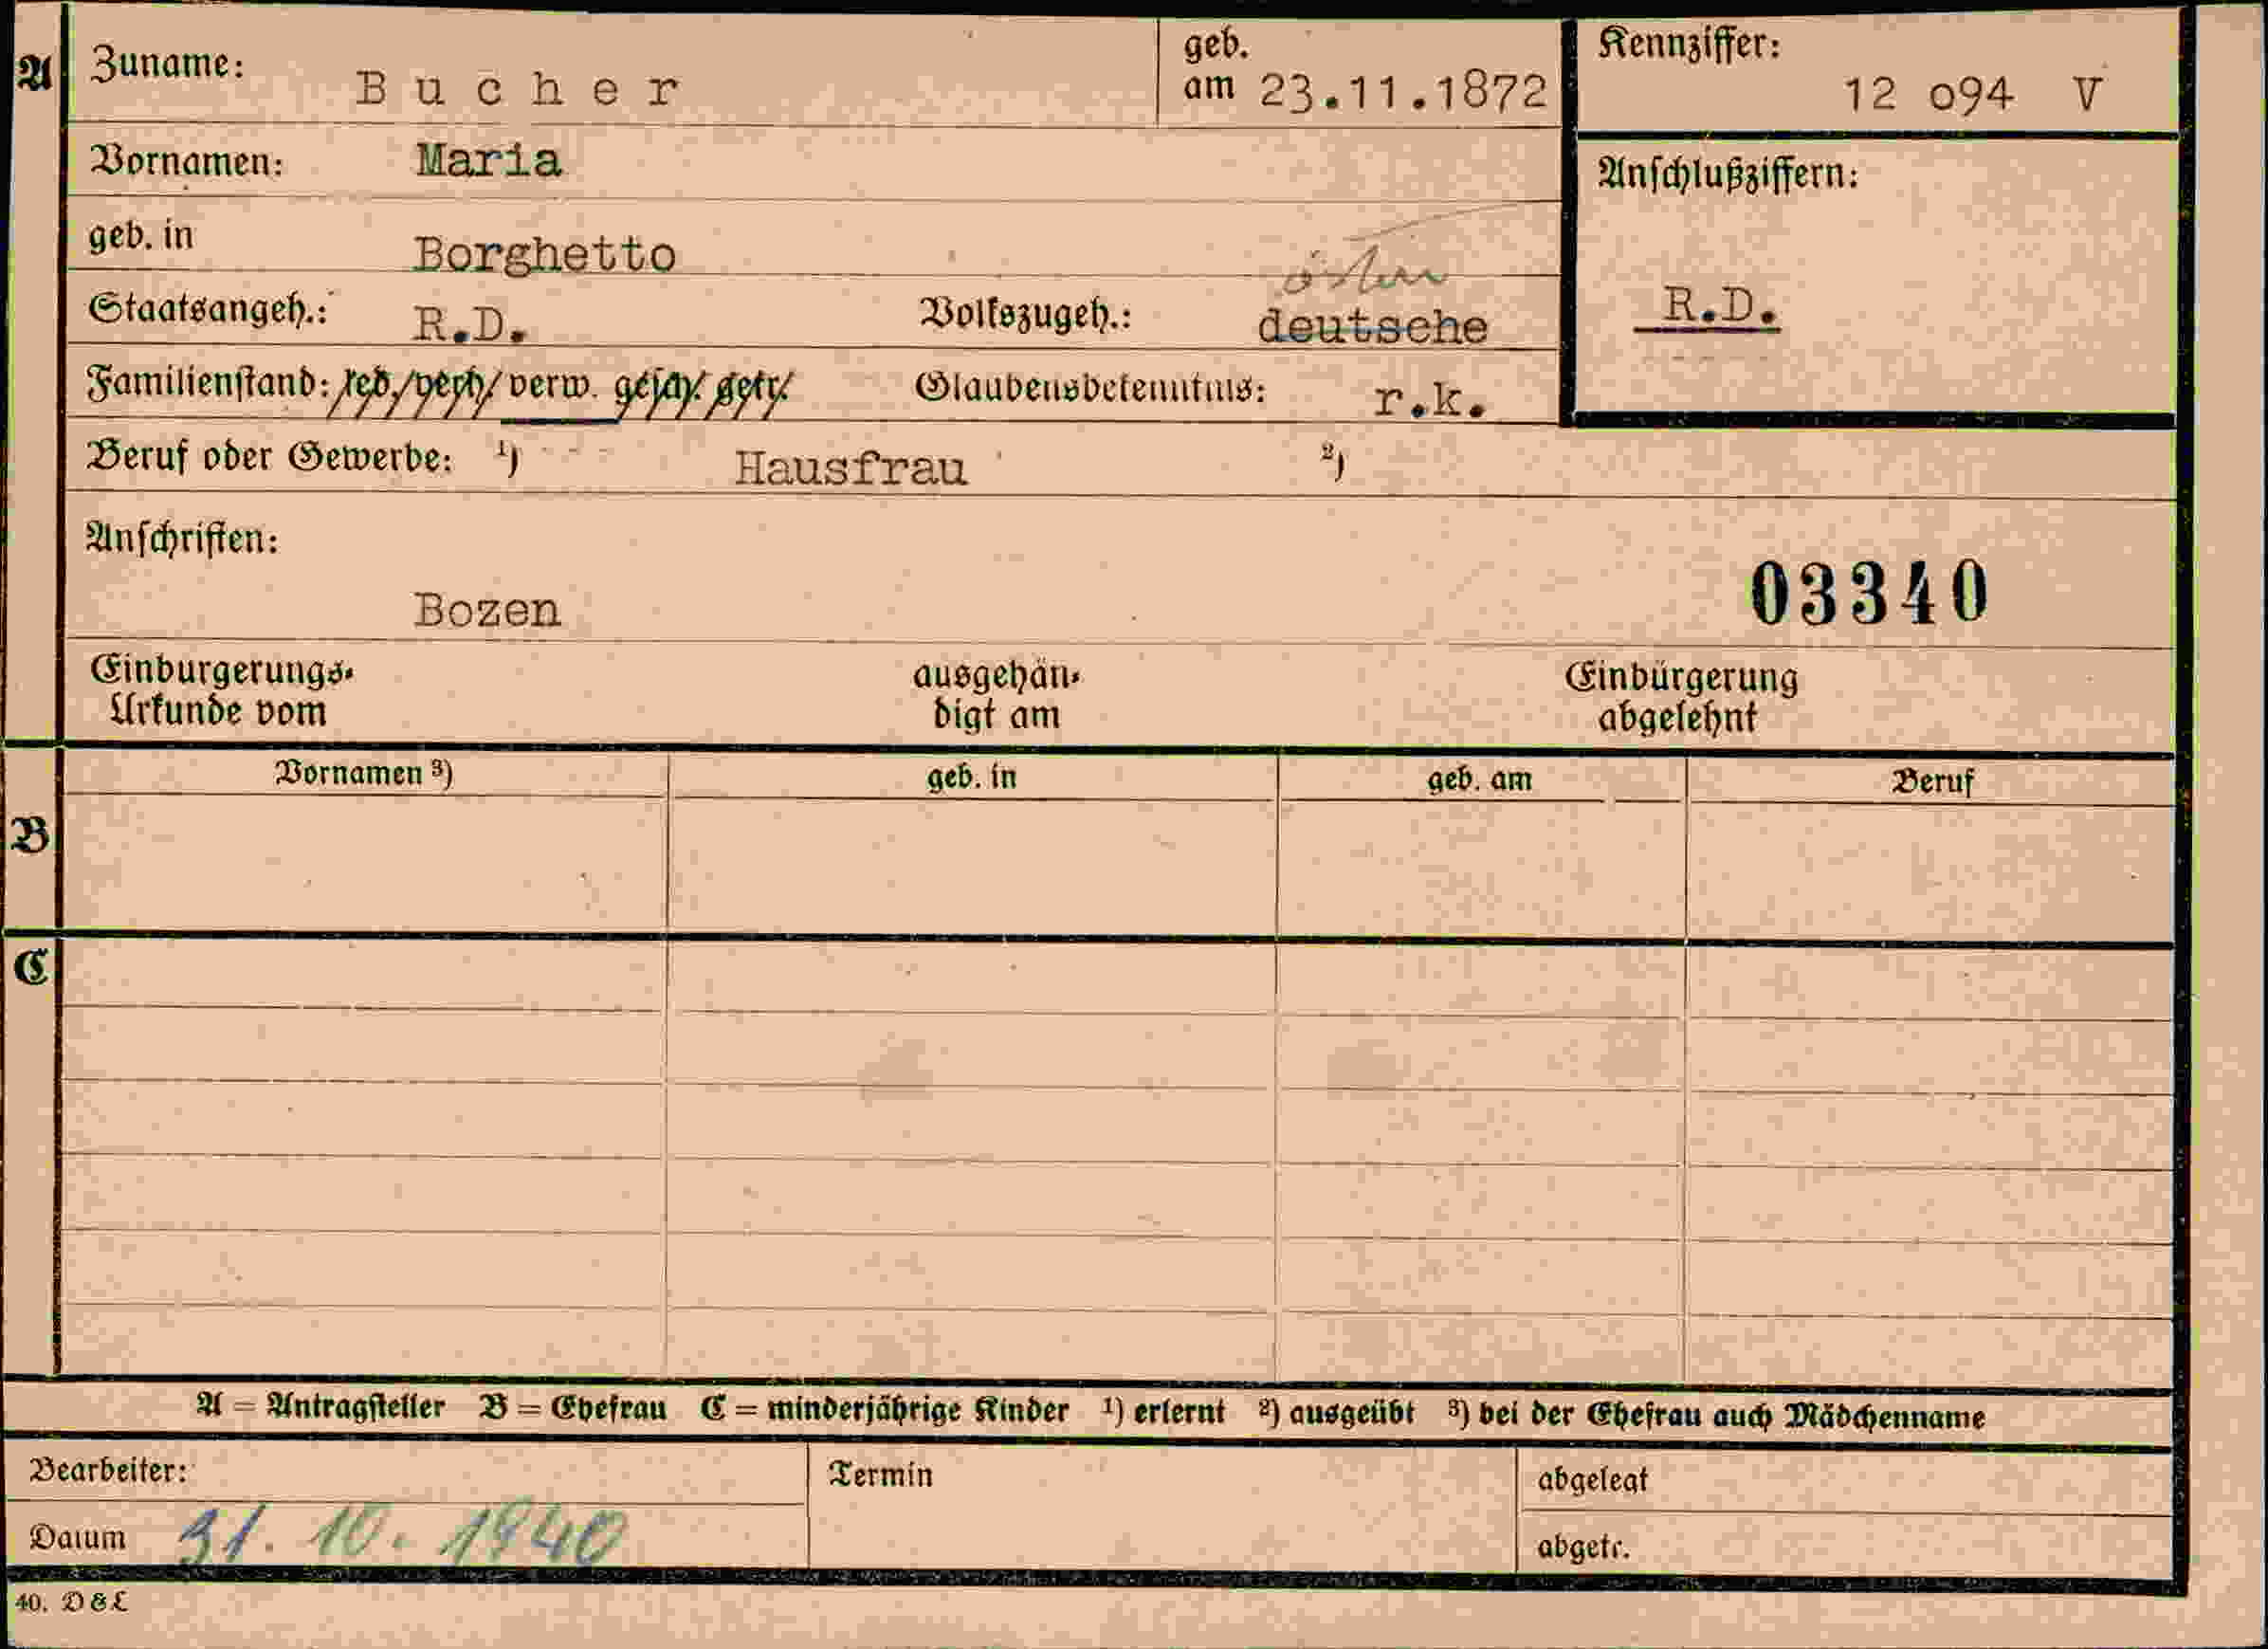 A Zuname: Bucher geb. am 23.11.1872 Kennziffer: 12 o94 V
Vornamen: Maria Anschlußziffern:
geb. in Borghetto
Staatsangeh.: R.D. Volkszugeh.: deutsche R.D.
Familienstand: led./verh./verw. gesch. getr. Glaubensbekenntnis: r.k.
Beruf oder Gewerbe: ¹) Hausfrau ²)
Anschriften:
Bozen 03340
Einbürgerungs- ausgehän- Einbürgerung
Urkunde vom digt am abgelehnt
Vornamen ³) geb. in geb. am Beruf
B
C
A = Antragsteller B = Ehefrau C = minderjährige Kinder ¹) erlernt ²) ausgeübt ³) bei der Ehefrau auch Mädchenname
Bearbeiter: Termin abgelegt
Datum 31. 10. 1940 abgetr.
40. D&L